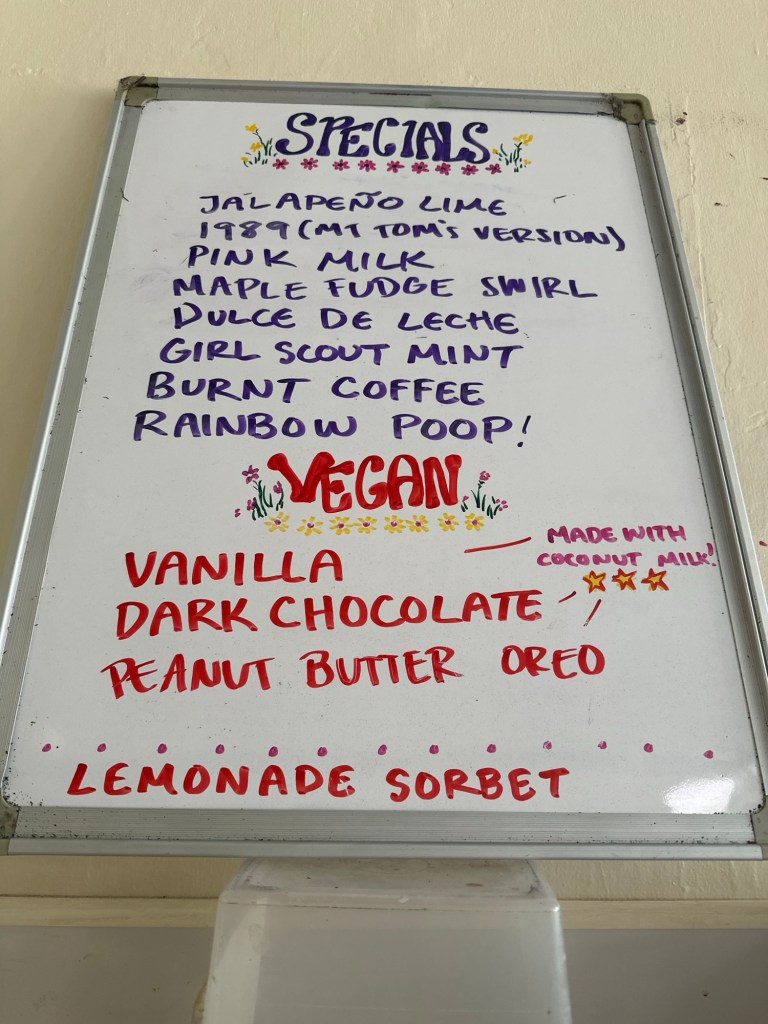 SPECIALS
JALAPEÑO LIME
1989 (MT TOM'S VERSION)
PINK MILK
MAPLE FUDGE SWIRL
DULCE DE LECHE
GIRL SCOUT MINT
BURNT COFFEE
RAINBOW POOP!
VEGAN
MADE WITH
COCONUT MILK!
VANILLA
DARK CHOCOLATE
PEANUT BUTTER OREO
LEMONADE SORBET